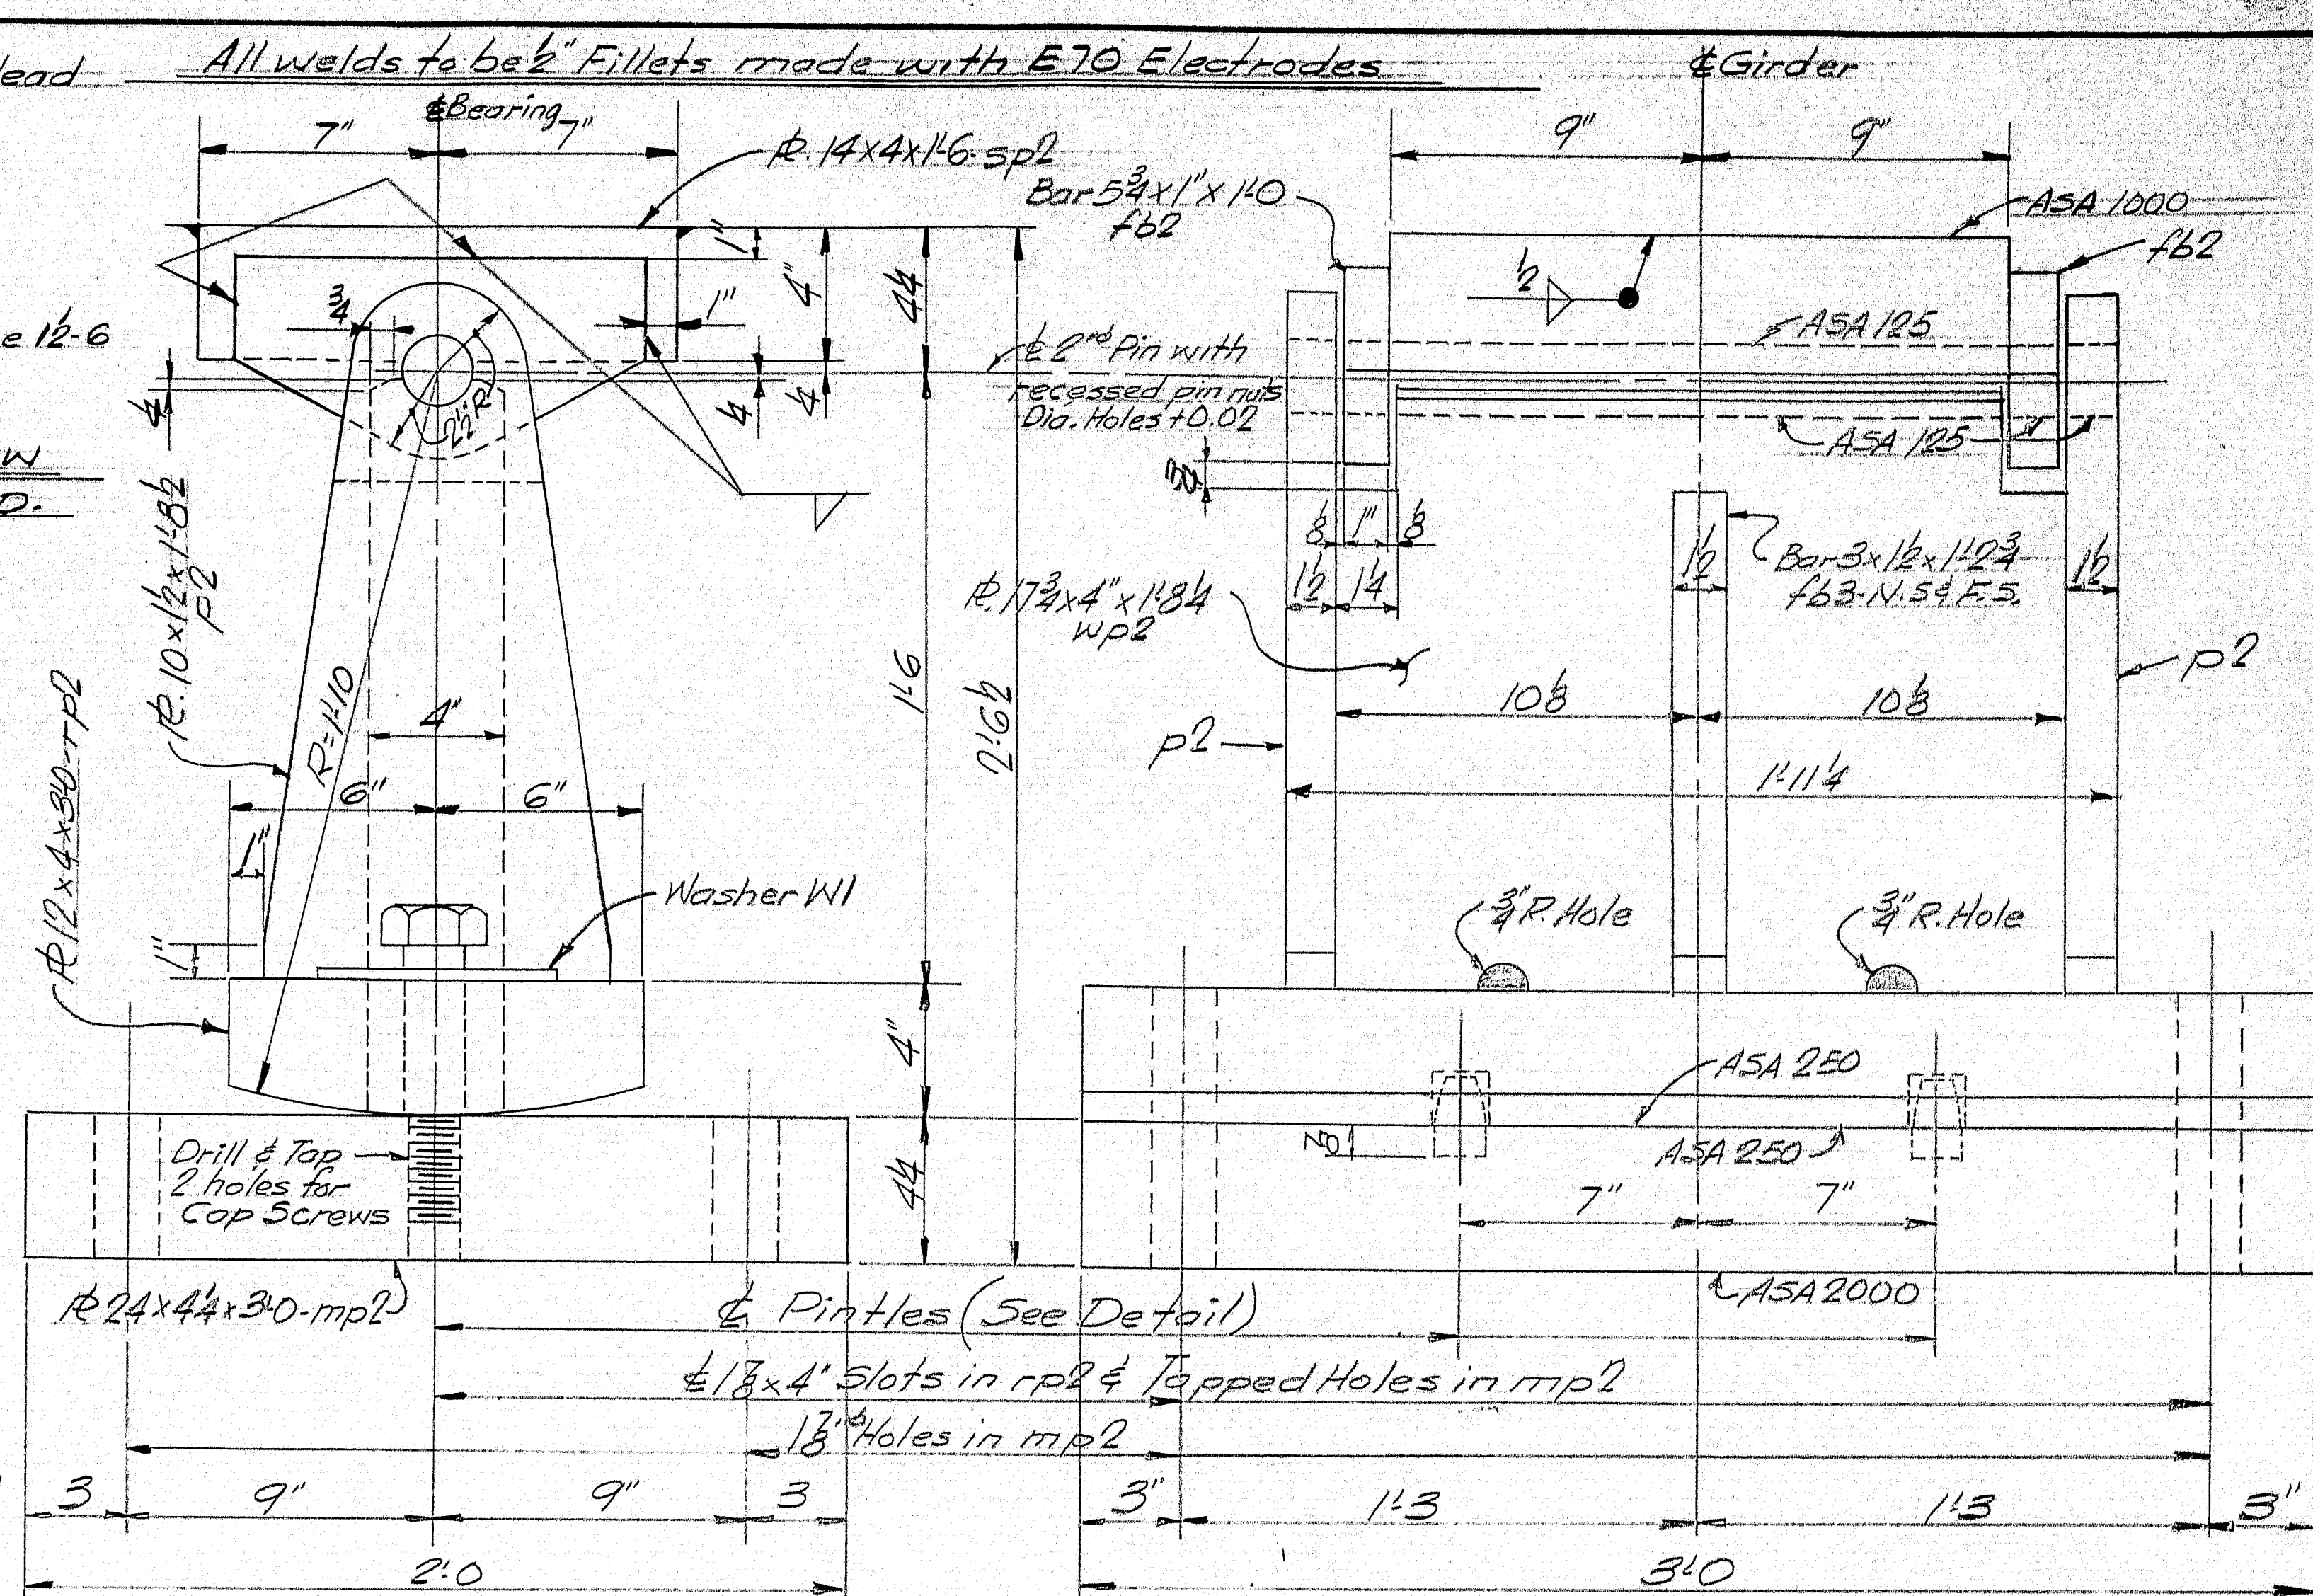 lead
All welds to be ½" Fillets made with E70 Electrodes
℄ Girder
℄ Bearing
7"
7"
9"
9"
℄. 14x4x1'-6-sp2
Bar 5¾x1"x1'-0
fb2
ASA 1000
fb2
1"
4"
4¼
½
¾
1"
e 1½-6
ASA 125
℄ 2"ᵠ Pin with
recessed pin nuts
Dia. Holes +0.02
¼
¼
¼
2½"R
ASA 125
W
D.
¾
⅛
1"
⅛
1½
Bar 3x1½x1'-2¾
fb3-N.S & F.S.
1½
1½
1¼
℄. 10x1½x1'-8½
p2
℄. 17¾x4"x1'-8¼
wp2
R=1'-10
1'-6
2'-6½
p2
4"
10⅛
10⅛
p2
℄ 12x4x3'-0-rp2
6"
6"
1'-11¼
1"
Washer W1
¾" R. Hole
¾" R. Hole
1"
4"
ASA 250
Drill & Tap
2 holes for
Cap Screws
4¼
⅞
ASA 250
7"
7"
℄ 24x4¼x3'-0-mp2
℄ Pintles (See Detail)
ASA 2000
℄ 1⅞x4" Slots in rp2 & Tapped Holes in mp2
1⅞"ᵠ Holes in mp2
3
9"
9"
3
3"
1'-3
1'-3
3"
2'-0
3'-0